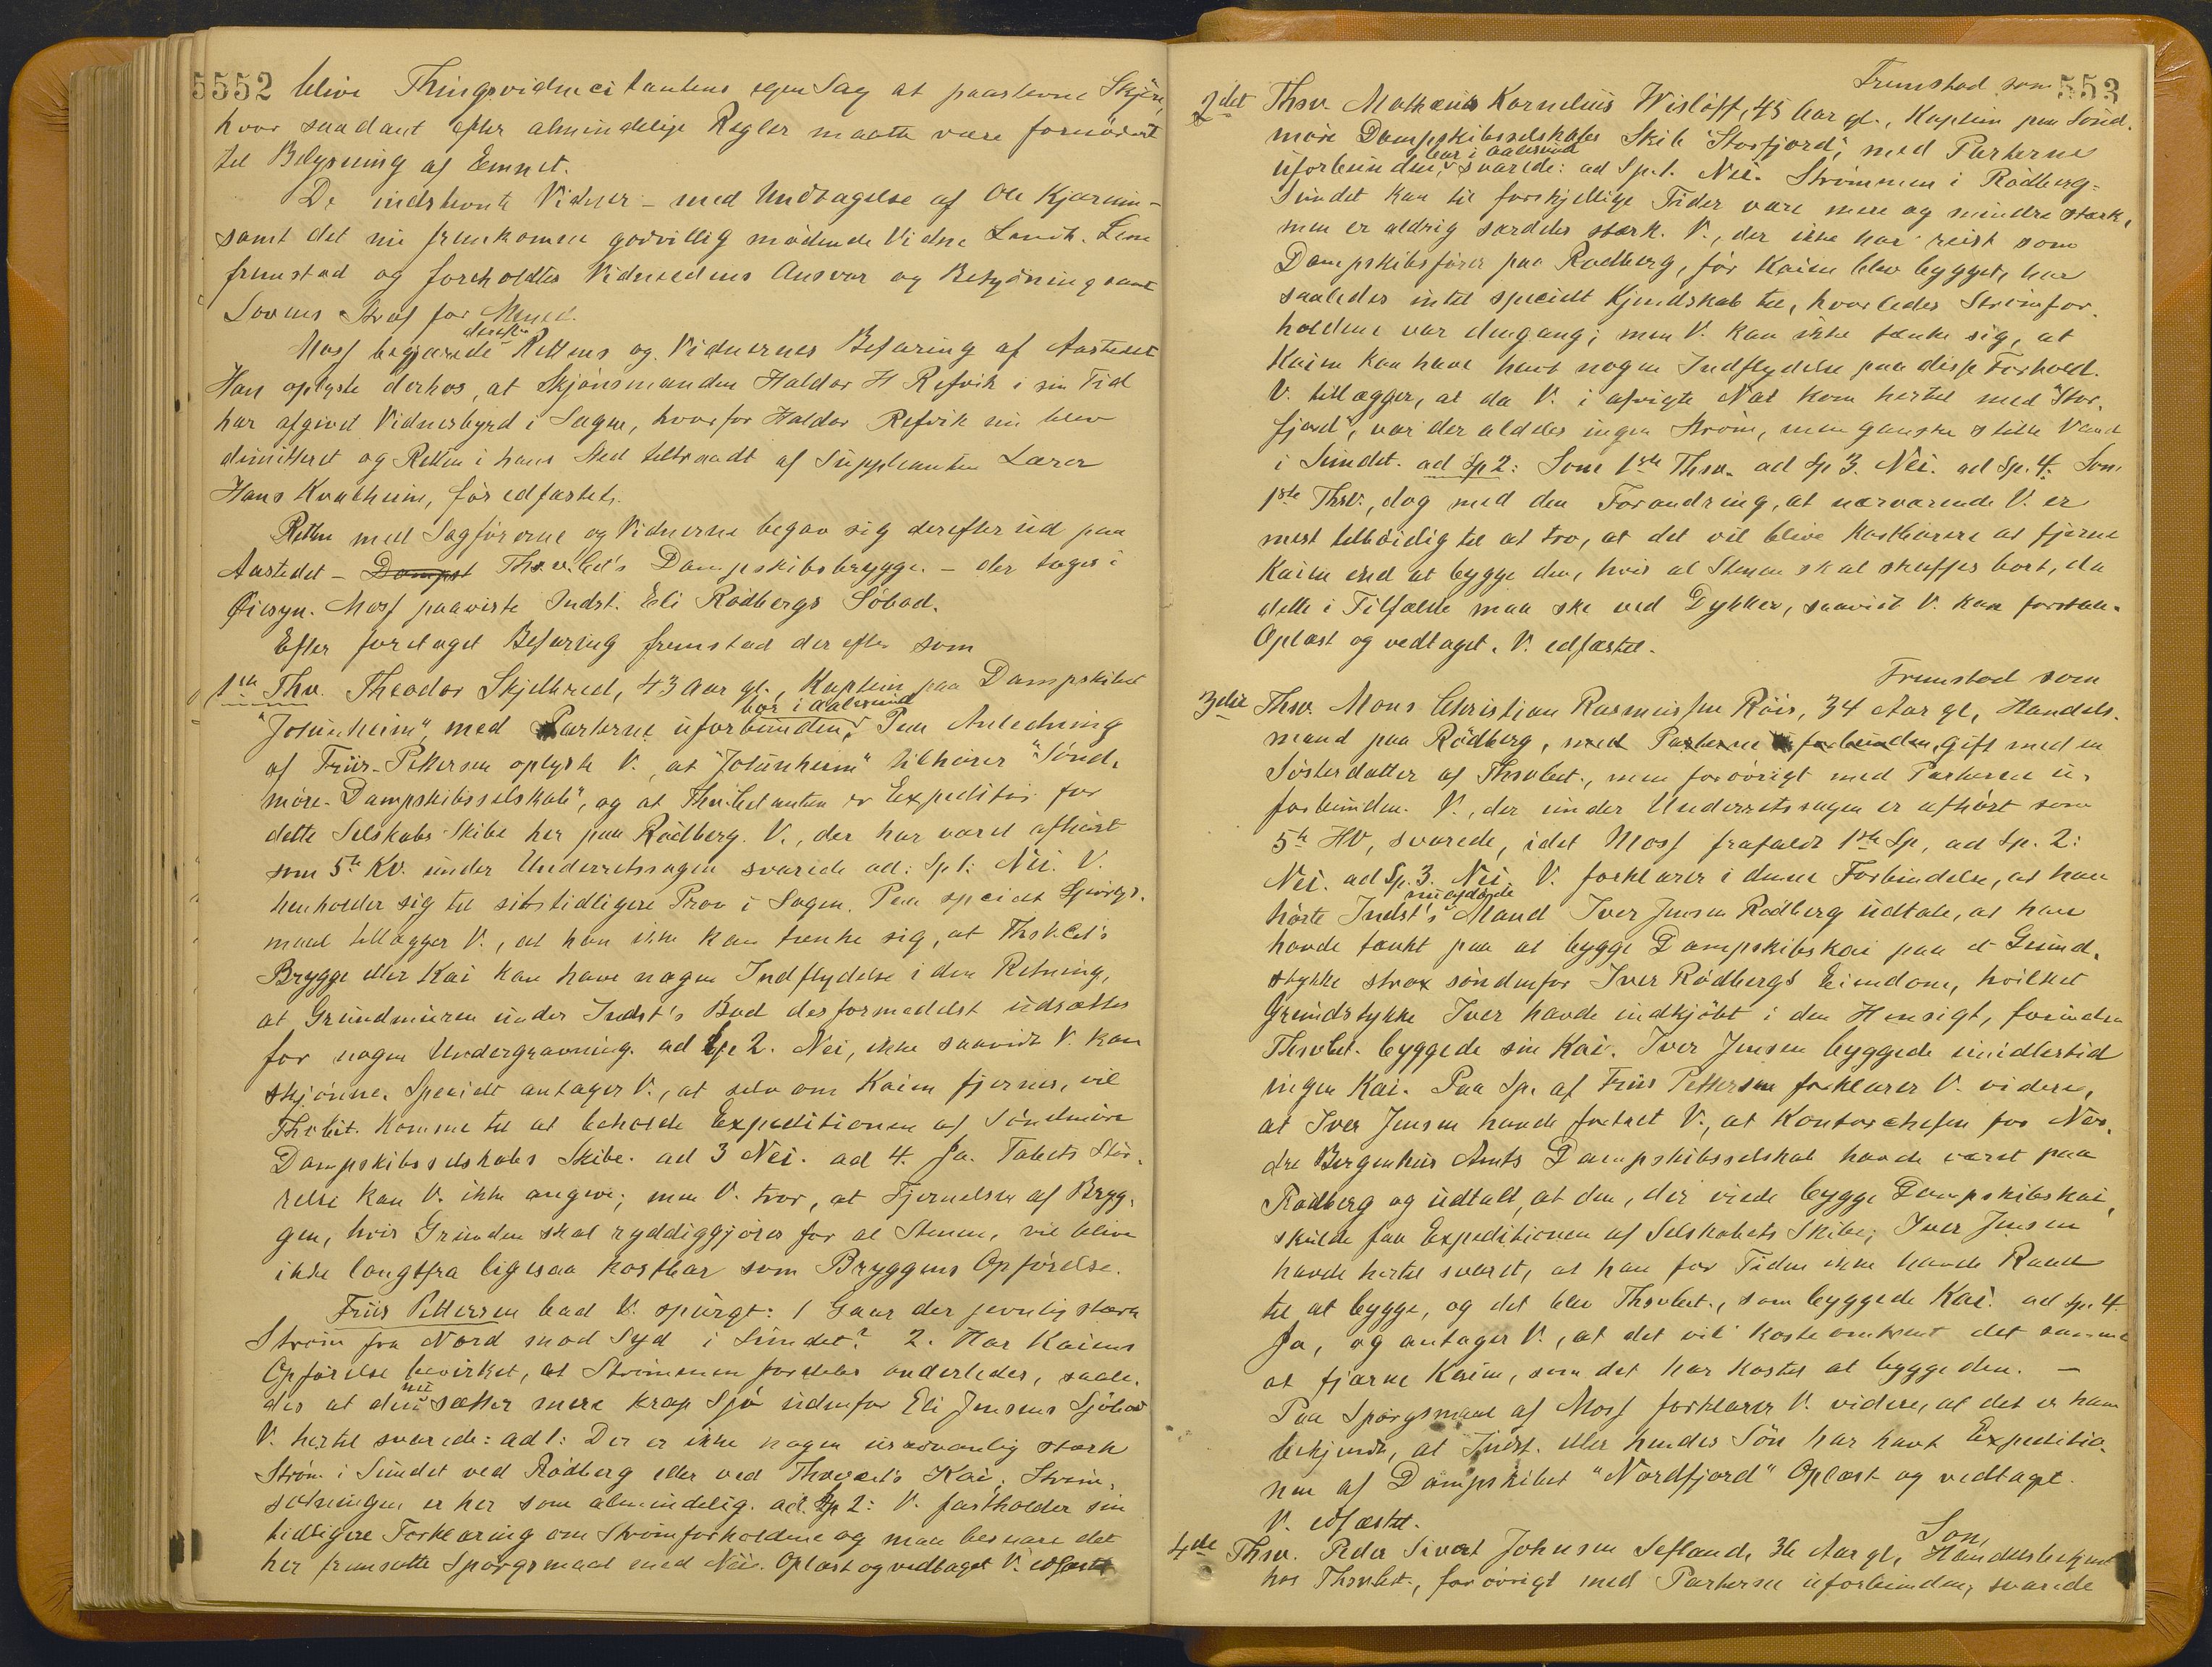 5552 blive Thingsvidnecitantens egen Sag at paastevne Skjön,
hvor saadant efter almindelige Regler maatte være fornödent
til Belysning af Emnet.
De indstevnte Vidner – med Undtagelse af Ole Kjarein –
samt det nu fremkomne godvillig mödende Vidne
fremstod og foreholdtes Vidneedens Ansvar og Betydning samt
Lovens Straf for Mened.
derefter
Moss begjærede Rettens og Vidnernes Befaring af Aastedet
Han oplyste derhos, at Skjönsmanden Haldor H Refvik i sin Tid
har afgivet Vidnesbyrd i Sagen, hvorfor Haldor Refvik nu blev
dimitteret og Retten i hans Sted tiltraadt af Suppleanten Lærer
Hans Kvalheim, för edfæstet.
Retten med Sagförerne og Vidnerne begav sig derefter ud paa
Aastedet – Dampsk Thsv.cit's Dampskibsbrygge. – der toges i
Öiesyn. Moss paaviste Indst. Eli Rödbergs Söbod.
Efter foretaget Befaring fremstod derefter som
1ste Thv. Theodor Skjelbred, 43 Aar gl., Kaptein paa Dampskibet
bor i Aalesund
"Jotunheim", med Parterne uforbunden. Paa Anledning
af Friis-Pettersen oplyste V., at "Jotunheim" tilhörer "Sönd-
möre-Dampskibsselskab", og at Thvcitanten er Expeditör for
dette Selskabs Skibe her paa Rödberg. V., der har været afhört
som 5te KV. under Underretssagen svarede ad: Sp 1: Nei. V.
henholder sig til sit tidligere Prov i Sagen. Paa specielt Spörgs-
maal tillægger V., at han ikke kan tænke sig, at Thsv.cit's
Brygge eller Kai kan have nogen Indflydelse i den Retning,
at Grundmuren under Indst's Bod desformedelst udsættes
for nogen Undergravning. ad Sp 2. Nei, ikke saavidt V. kan
skjönne. Specielt antager V., at selv om Kaien fjernes, vil
Thvcit. komme til at beholde Expeditionen af Söndmöre
Dampskibsselskabs Skibe. ad 3 Nei. ad 4. Ja. Tabets Stör-
relse kan V. ikke angive; men V. tror, at Fjernelsen af Bryg-
gen, hvis Grunden skal ryddiggjöres for al Stenen, vil blive
ikke langtfra ligesaa kostbar som Bryggens Opförelse.
Friis Pettersen bad V. spurgt: 1 Gaar der jevnlig stærk
Ström fra Nord mod Syd i Sundet? 2. Har Kaiens
Opförelse bevirket, at Strömmen fordeles anderledes, saale-
nu
des at den sætter mere krap Sjö udenfor Eli Jensens Sjöbod
V. hertil svarede: ad 1: Der er ikke nogen usædvanlig stærk
Ström i Sundet ved Rödberg eller ved Thsvcit's Kai; Ström-
sætningen er her som almindelig. ad. Sp 2: V. fastholder sin
tidligere Forklaring om Strömforholdene og maa besvare det
her fremsatte Spörgsmaal med Nei. Oplæst og vedtaget V. edfæstet
553
Fremstod som
2det Thsv. Mathæus Kornelius Wislöff, 45 Aar gl., Kaptein paa Sönd-
möre Dampskibsselskabs Skib "Storfjord", med Parterne
bor i Aalesund
uforbunden, svarede: ad Sp.1. Nei. Strömmen i Rödberg-
sundet kan til forskjellige Tider være mere og mindre stærk,
men er aldrig særdeles stærk. V., der ikke har reist som
Dampskibsförer paa Rödberg, för Kaien blev bygget, har
saaledes intet specielt Kjendskab til, hvorledes Strömfor-
holdene var dengang; men V. kan ikke tænke sig, at
Kaien kan have havt nogen Indflydelse paa disse Forhold.
V. tillægger, at da V. i afvigte Nat kom hertil med "Stor-
fjord", var der aldeles ingen Ström, men ganske stille Vand
i Sundet. ad Sp 2: Som 1ste Thsv. ad Sp 3. Nei. ad Sp. 4. Som
1ste Thsv., dog med den Forandring, at nærværende V. er
mest tilböielig til at tro, at det vil blive kostbarere at fjerne
Kaien end at bygge den, hvis al Stenen skal skaffes bort, da
dette i Tilfælde maa ske ved Dykker, saavidt V. kan forstaa.
Oplæst og vedtaget. V. edfæstet.
Fremstod som
3die Thsv. Mons Christian Rasmussen Röis, 34 Aar gl., Handels-
mand paa Rödberg, med Parterne uforbunden, gift med en
Sösterdatter af Thsvcit., men forövrigt med Parterne u-
forbunden. V., der under Underretssagen er afhört som
5te HV, svarede, idet Moss frafaldt 1ste Sp, ad Sp. 2:
Nei. ad Sp. 3. Nei. V. forklarer i denne Forbindelse, at han
nu afdöde
hörte Indst's Mand Iver Jensen Rödberg udtale, at han
havde tænkt paa at bygge Dampskibskai paa et Grund-
stykke strax söndenfor Iver Rödbergs Eiendom, hvilket
Grundstykke Iver havde indkjöbt i den Hensigt, forinden
Thsvcit. byggede sin Kai. Iver Jensen byggede imidlertid
ingen Kai. Paa Sp. af Friis Pettersen forklarer V. videre,
at Iver Jensen havde fortalt V., at Kontorchefen for Nor-
dre Bergenhus Amts Dampskibsselskab havde været paa
Rödberg og udtalt, at den, der vilde bygge Dampskibskai,
skulde faa Expeditionen af Selskabets Skibe; Iver Jensen
havde hertil svaret, at han for Tiden ikke havde Raad
til at bygge, og det blev Thsvcit., som byggede Kai. ad Sp. 4.
Ja, og antager V., at det vil koste omtrent det samme
at fjerne Kaien, som det har kostet at bygge den. –
Paa Spörgsmaal af Moss forklarer V. videre, at det er ham
bekjendt, at Indst. eller hendes Sön har havt Expeditio-
nen af Dampskibet "Nordfjord" Oplæst og vedtaget.
V. edfæstet.
Som
4de Thsv. Peder Sivert Johnsen Sefland, 36 Aar gl., Handelsbetjent
hos Thsvcit., forövrigt med Parterne uforbunden, svarede